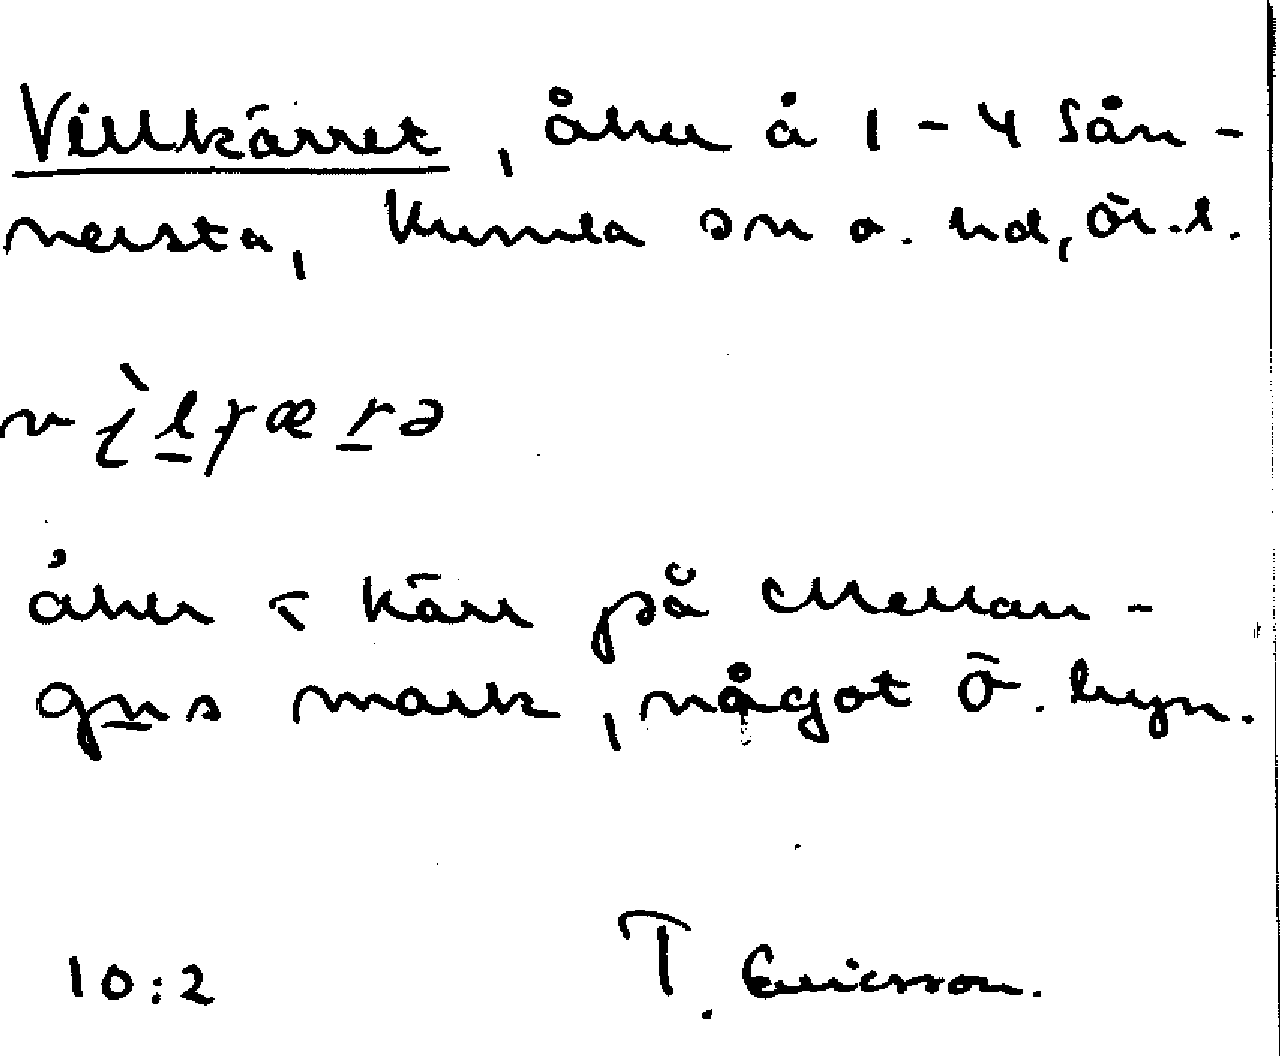 Villkärret, åker å 1-4 Sån-
nersta, Kumla sn o. hd, Ör. l.
åker i kärr på Mellan-
gns mark, något Ö. byn.
10:2 T. Ericsson.